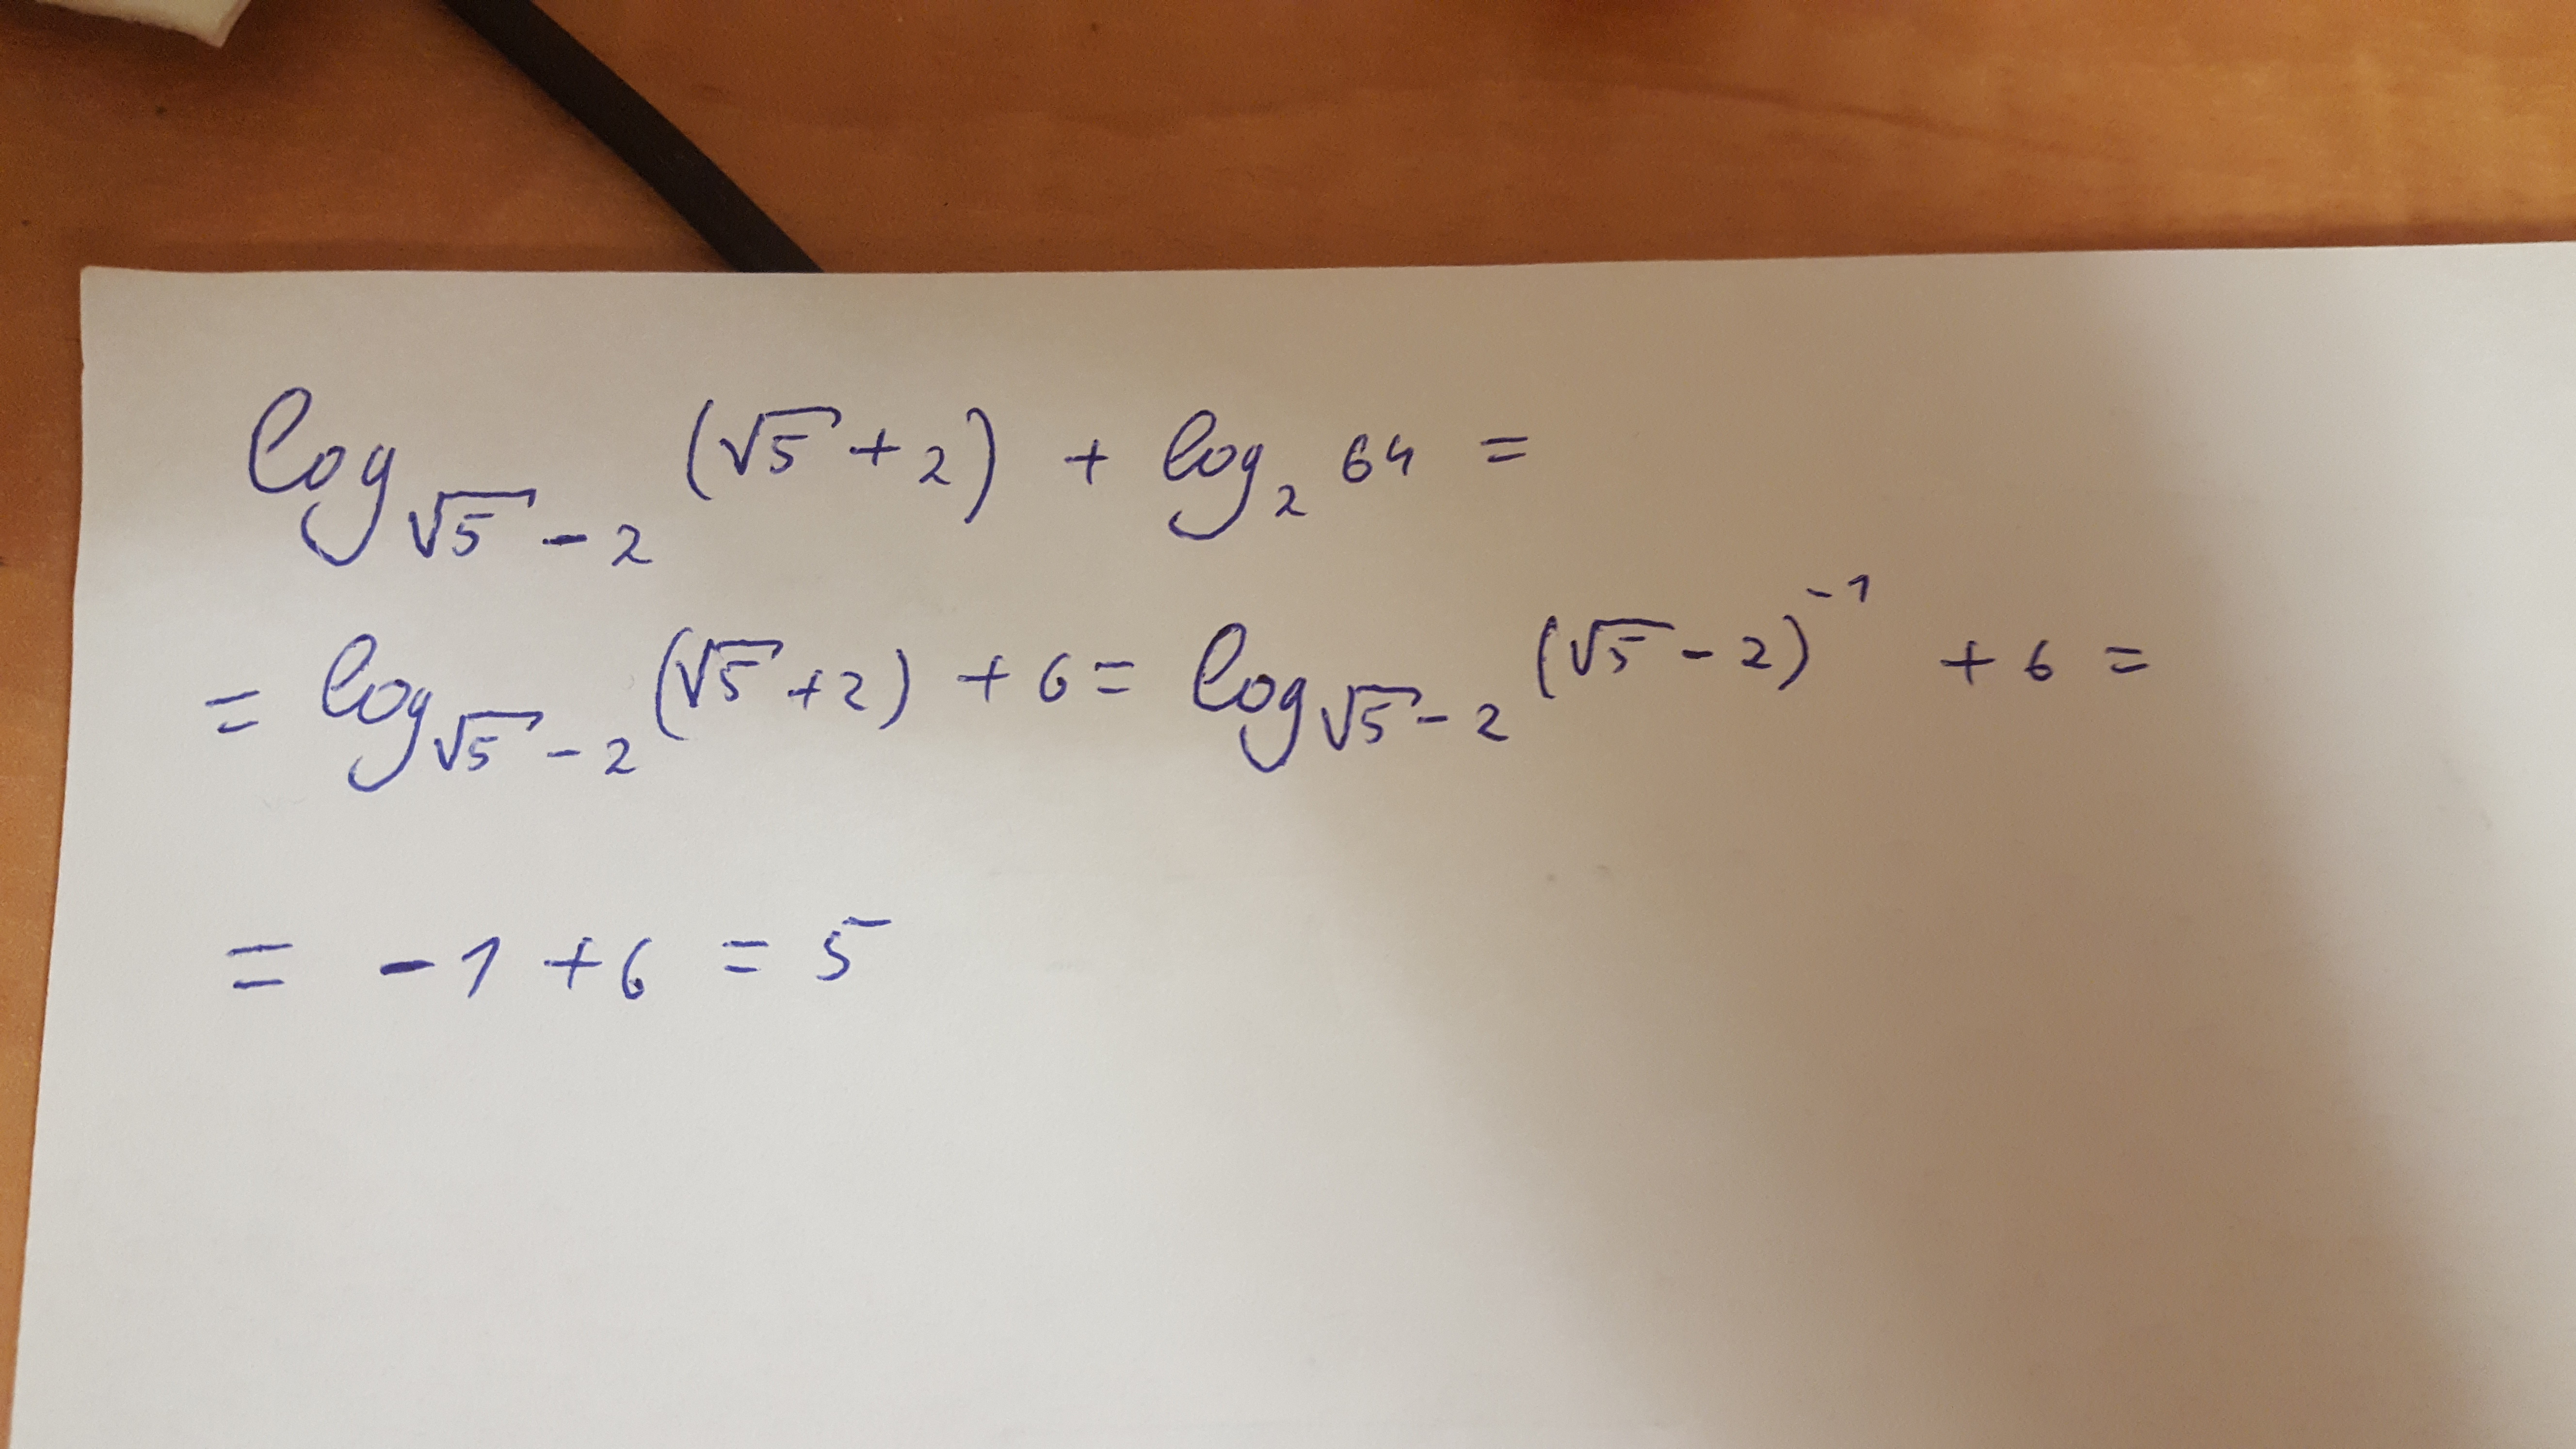 log_{√5-2} (√5+2) + log_2 64 =
= log_{√5-2} (√5+2) + 6 = log_{√5-2} (√5-2)^{-1} + 6 =
= -1 + 6 = 5